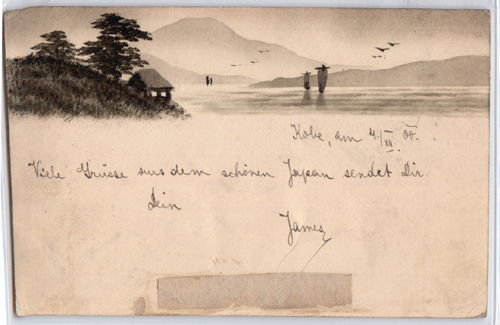 Kobe, am 4./XI 04.
Viele Grüsse aus dem schönen Japan sendet Dir
Dein
James